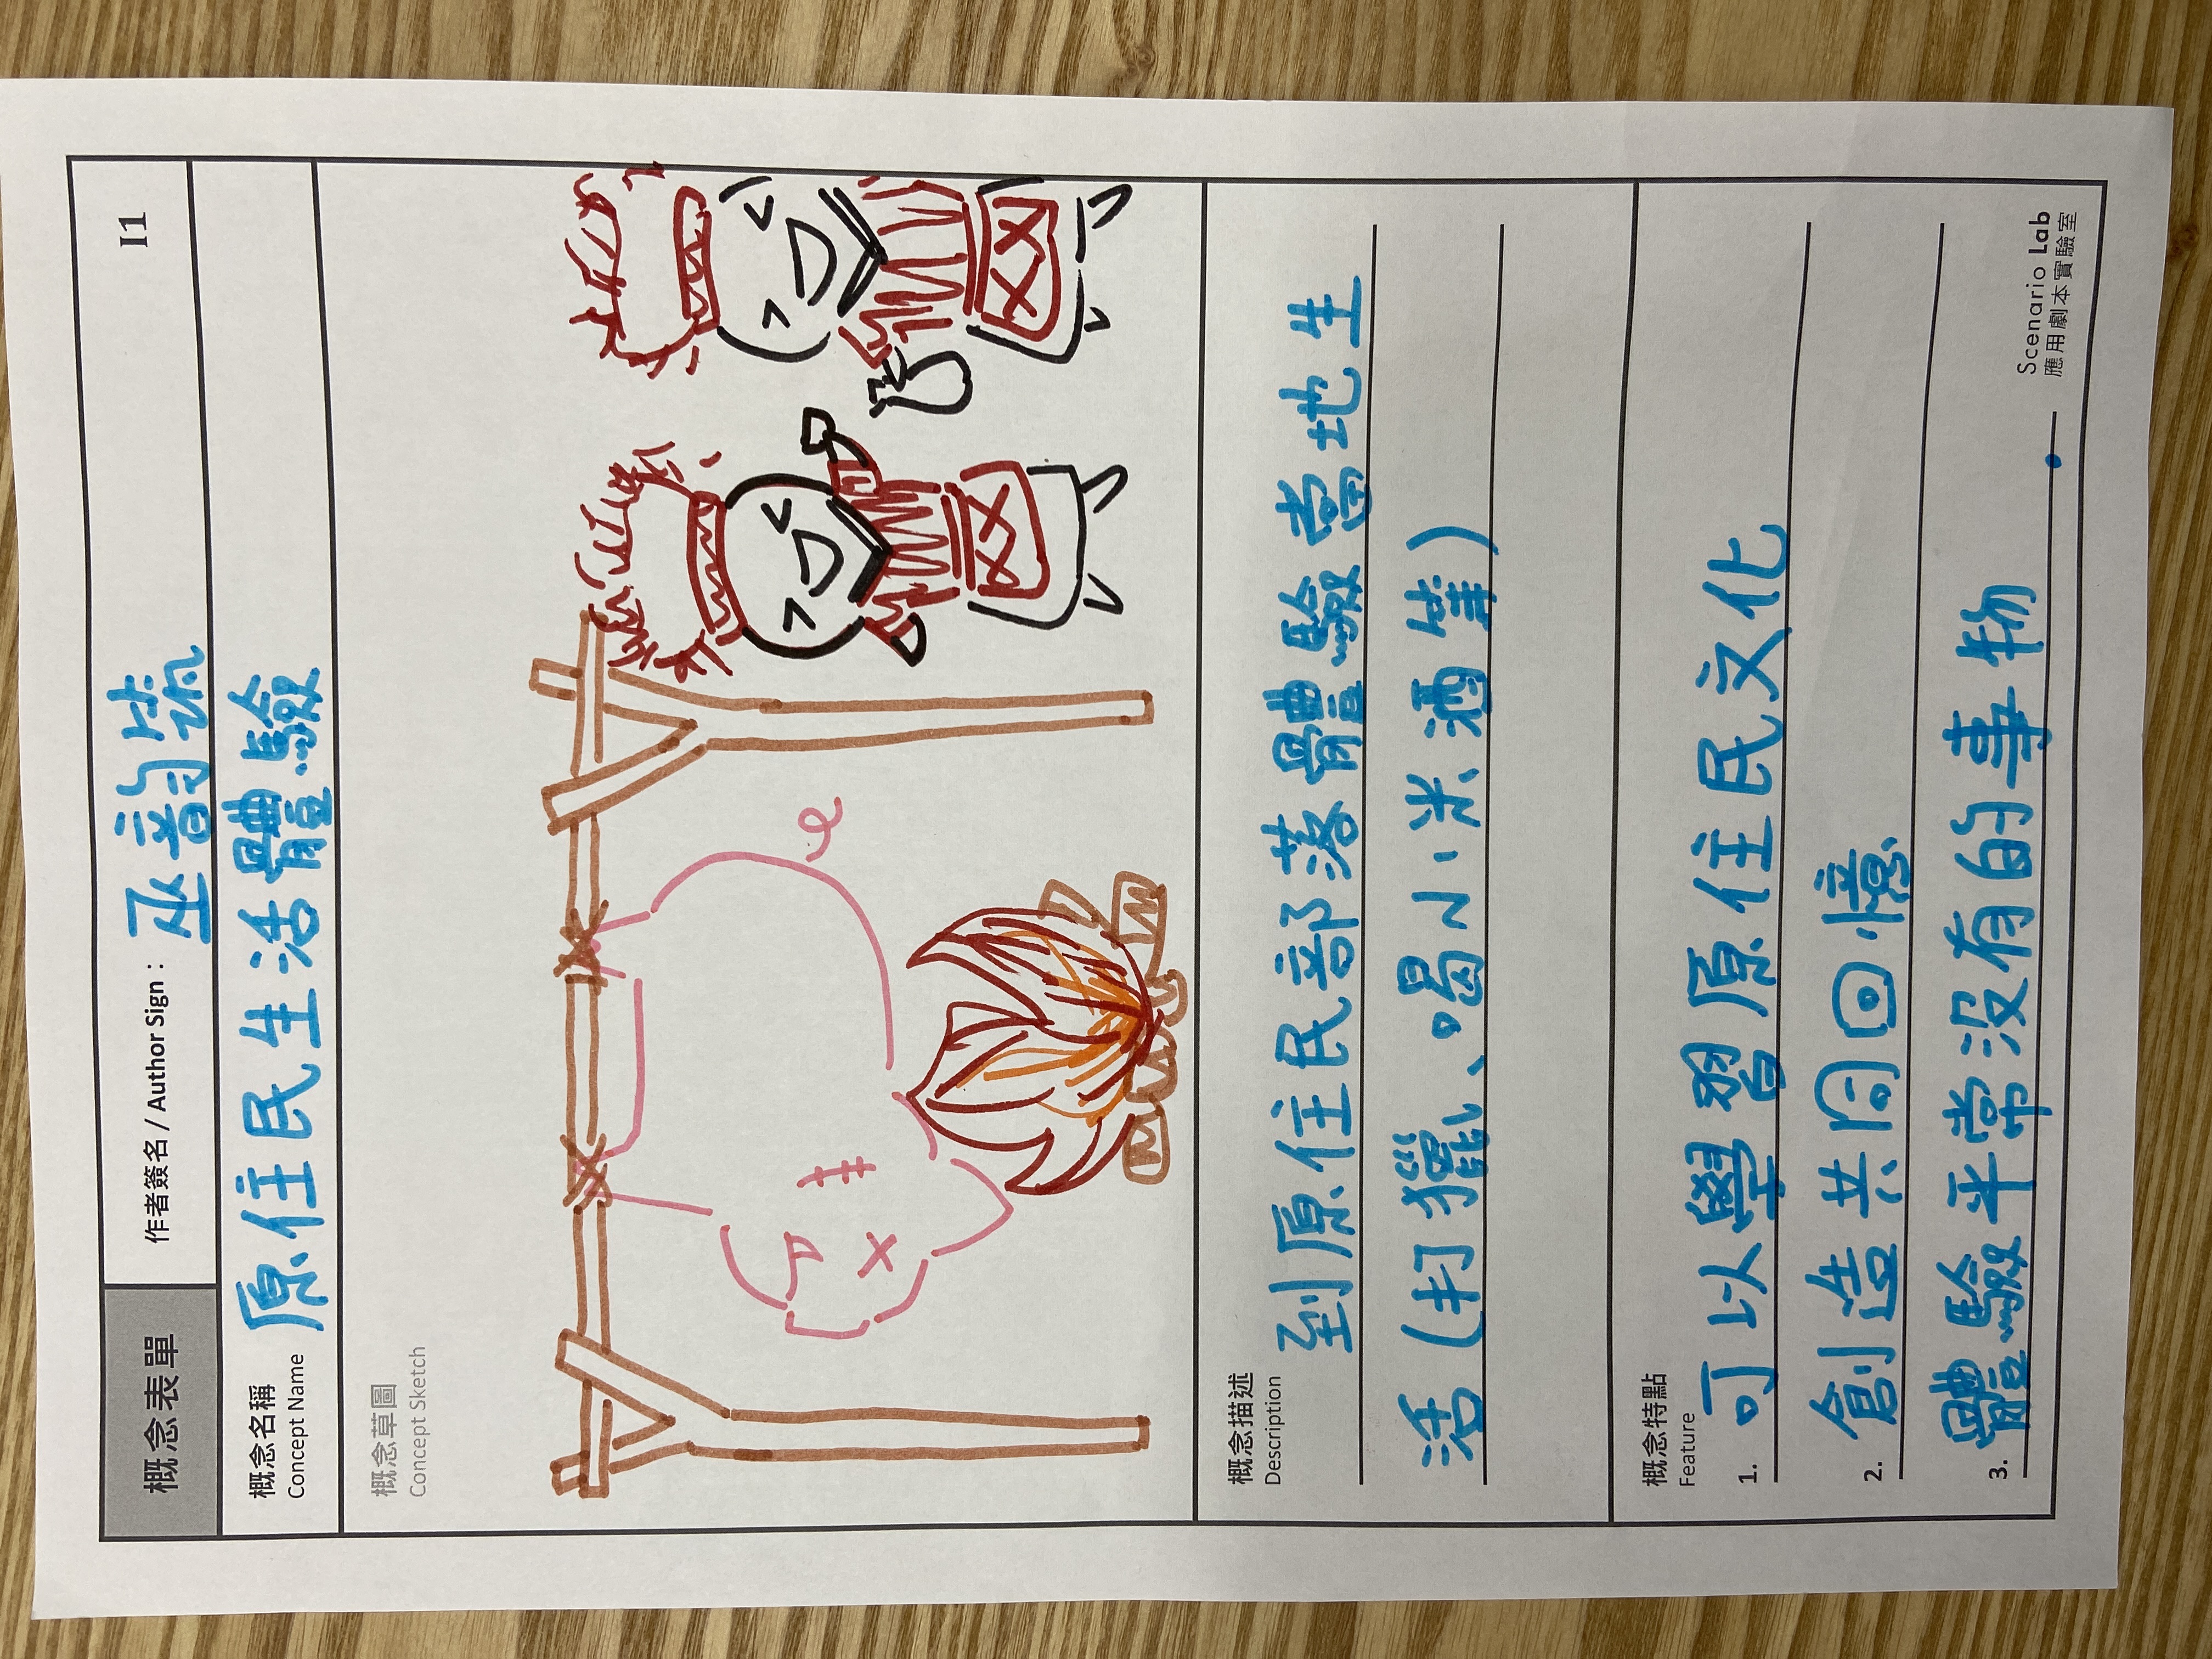 概念表單
作者簽名 / Author Sign： 巫韵筑
I1
概念名稱 原住民生活體驗
Concept Name
概念草圖
Concept Sketch
概念描述
Description
到原住民部落體驗當地生
活(打獵、喝小米酒等)
概念特點
Feature
1. 可以學習原住民文化
2. 創造共同回憶
3. 體驗平常沒有的事物
Scenario Lab
應用劇本實驗室